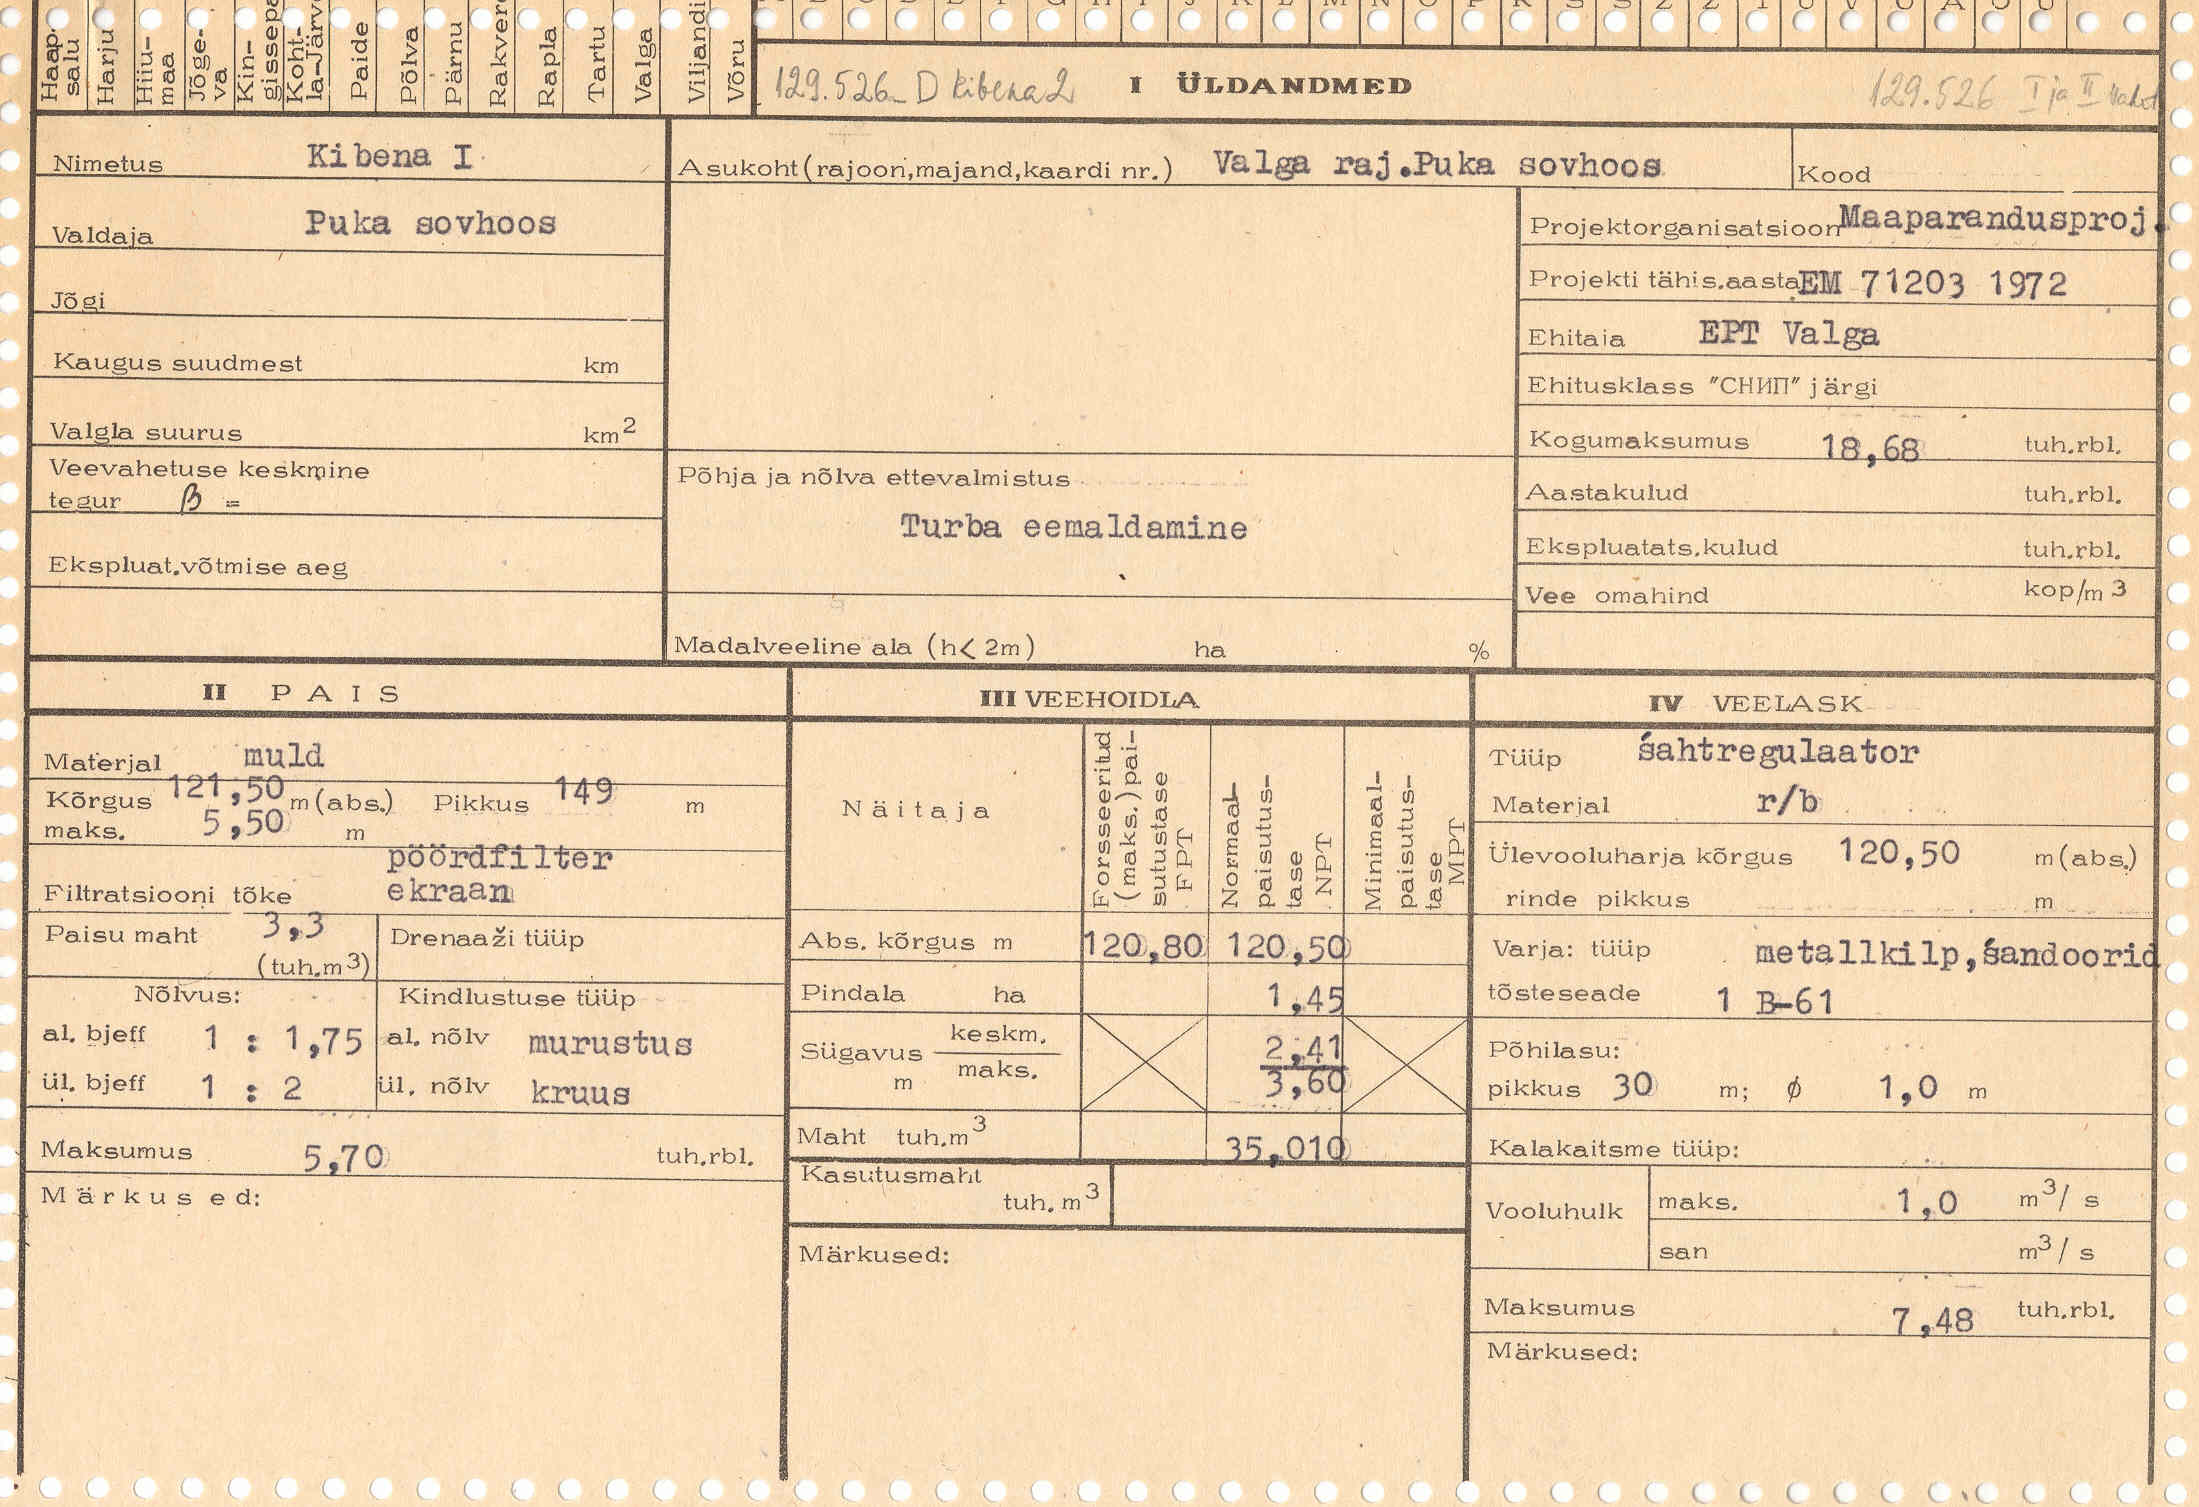 Haap-
salu
Harju
Hiiu-
maa
Jõge-
va
Kin-
gissepa
Koht-
la-Järve
Paide
Põlva
Pärnu
Rakvere
Rapla
Tartu
Valga
Viljandi
Võru
129.526 D Kibena 2
I ÜLDANDMED
129.526 I ja II
Nimetus Kibena I
Asukoht (rajoon, majand, kaardi nr.) Valga raj. Puka sovhoos
Kood
Valdaja Puka sovhoos
Jõgi
Kaugus suudmest km
Valgla suurus km2
Veevahetuse keskmine
tegur β =
Ekspluat. võtmise aeg
Põhja ja nõlva ettevalmistus
Turba eemaldamine
Madalveeline ala (h< 2m) ha %
Projektorganisatsioon Maaparandusproj.
Projekti tähis. aasta EM 71203 1972
Ehitaia EPT Valga
Ehitusklass "СНИП" järgi
Kogumaksumus 18,68 tuh.rbl.
Aastakulud tuh.rbl.
Ekspluatats.kulud tuh.rbl.
Vee omahind kop/m3
II PAIS
Materjal muld
Kõrgus 121,50 m (abs.) Pikkus 149 m
maks. 5,50 m
pöördfilter
Filtratsiooni tõke ekraan
Paisu maht 3,3
(tuh.m3)
Drenaaži tüüp
Nõlvus: Kindlustuse tüüp
al. bjeff 1 : 1,75 al. nõlv murustus
ül. bjeff 1 : 2 ül. nõlv kruus
Maksumus 5,70 tuh.rbl.
Märkused:
III VEEHOIDLA
Näitaja
Forsseeritud
(maks.) pai-
sutustase
FPT
Normaal-
paisutus-
tase
NPT
Minimaal-
paisutus-
tase
MPT
Abs. kõrgus m 120,80 120,50
Pindala ha 1,45
Sügavus keskm. 2,41
m maks. 3,60
Maht tuh.m3 35,010
Kasutusmaht
tuh. m3
Märkused:
IV VEELASK
Tüüp śahtregulaator
Materjal r/b
Ülevooluharja kõrgus 120,50 m (abs.)
rinde pikkus m
Varja: tüüp metallkilp, śandoorid
tõsteseade 1 B-61
Põhilasu:
pikkus 30 m; ϕ 1,0 m
Kalakaitsme tüüp:
Vooluhulk maks. 1,0 m3/ s
san m3/ s
Maksumus 7,48 tuh.rbl.
Märkused: